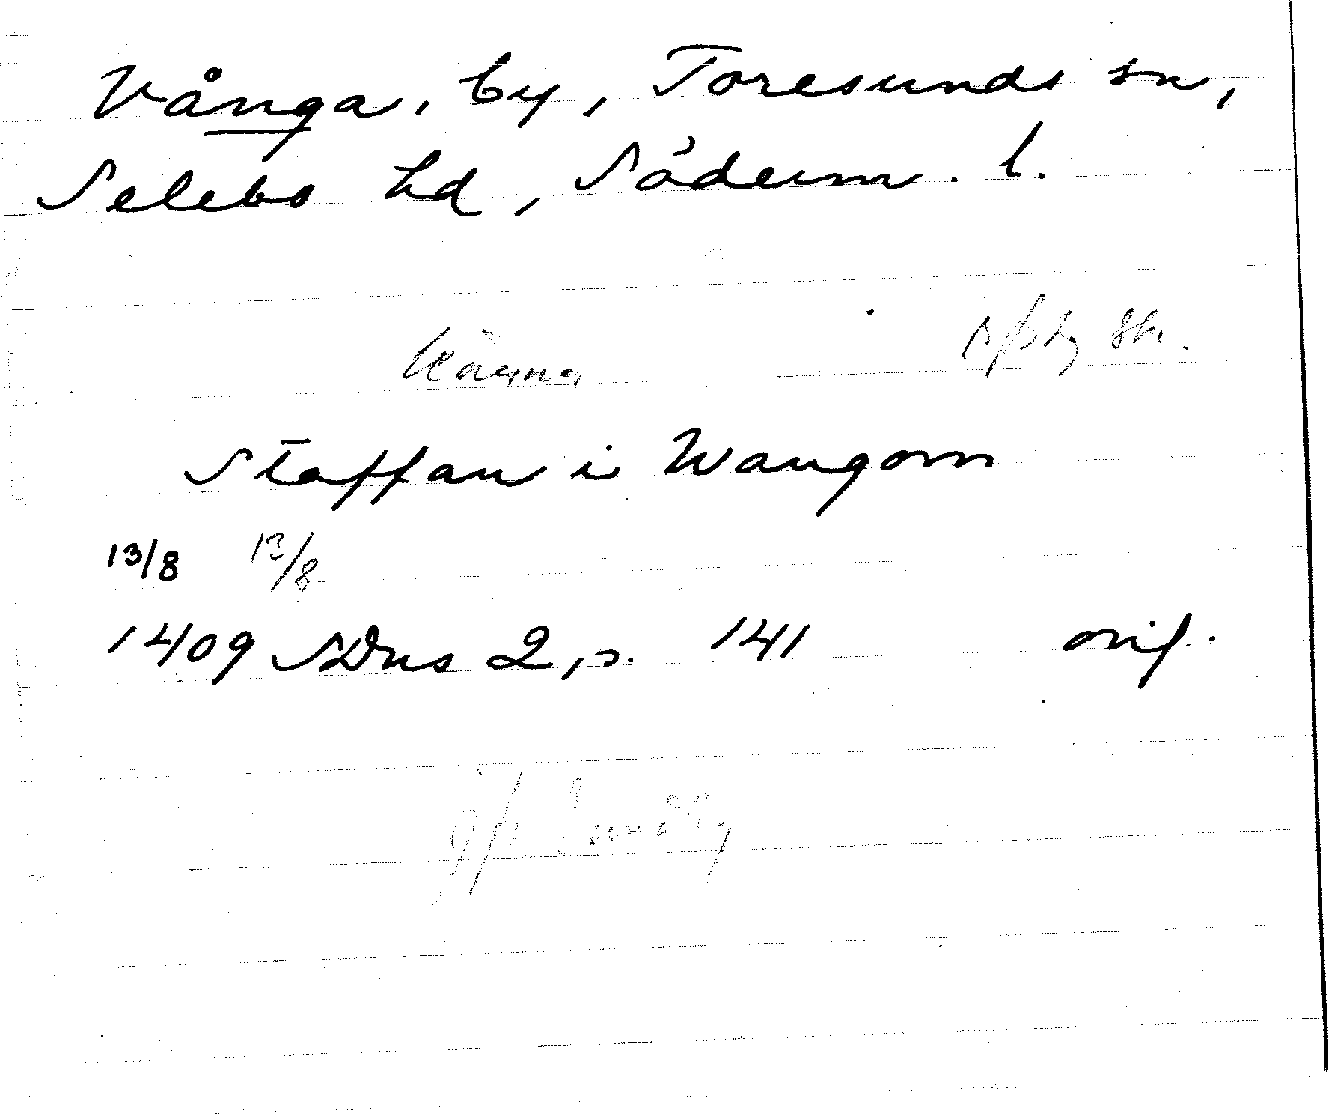 Vånga, by, Toresunds sn,
Selebo hd, Söderm. l.
Staffan i Wangom
13/8 13/8
1409 SDns 2, s. 141 orig.